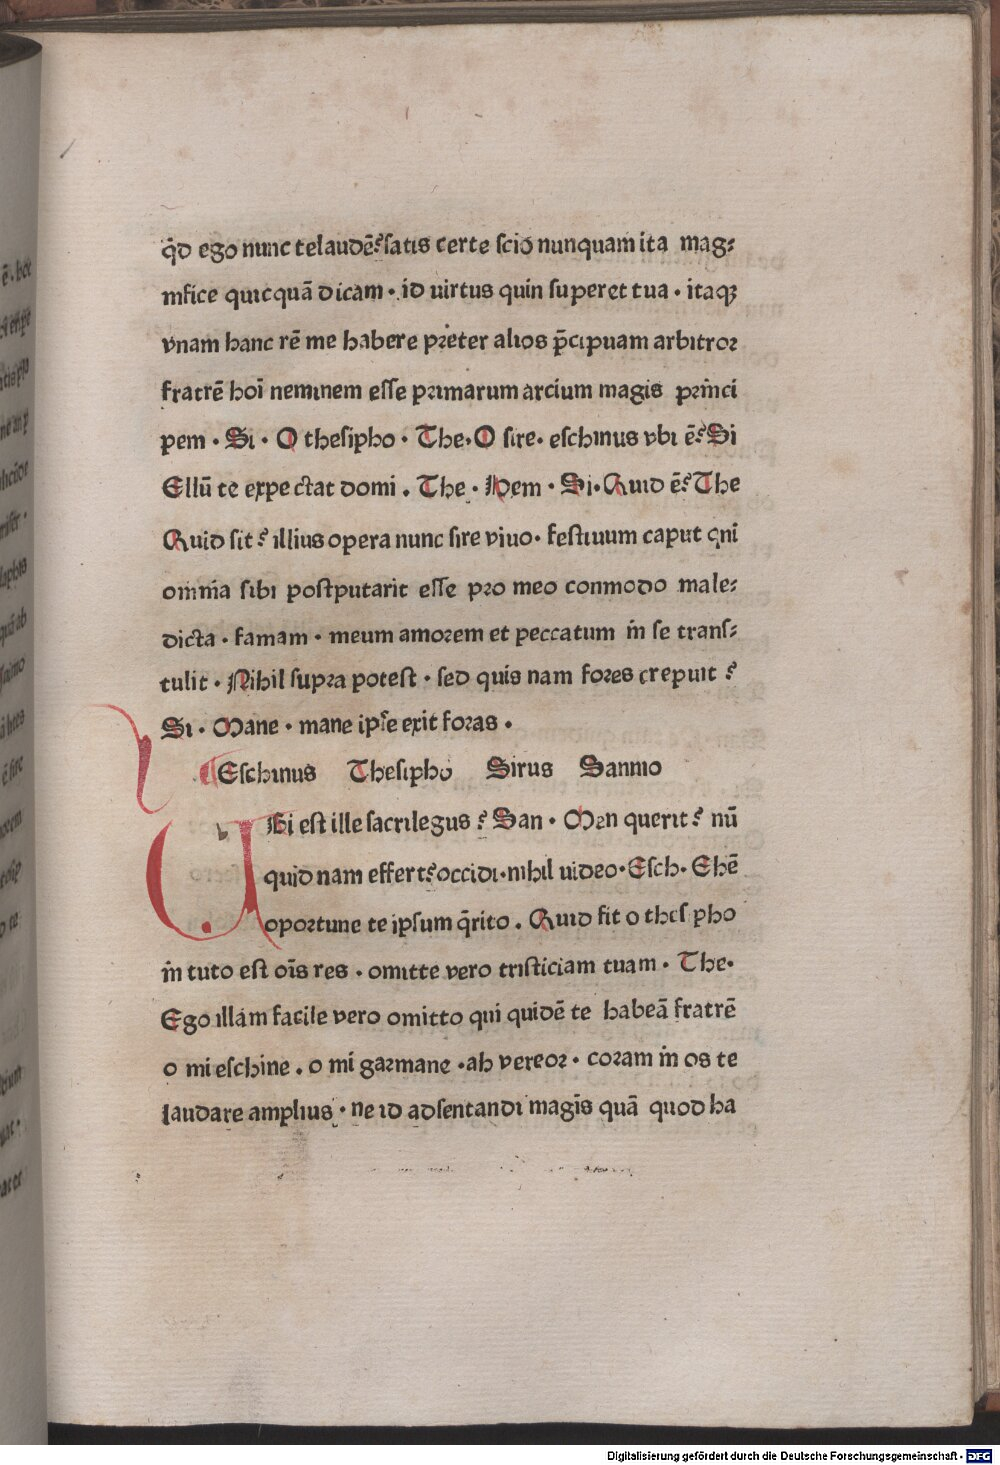 q̄d ego nunc te laudē? satis certe scio nunquam ita mag-
nifice quicquā dicam · id uirtus quin superet tua · itaqꝫ
vnam hanc rē me habere preter alios p̄cipuam arbitror
fratrē hoī neminem esse primarum arcium magis princi
pem · Si · O thesipho · The · O sire · eschinus vbi ē? Si
Ellū te expectat domi . The · Hem · Si · Quid ē? The
Quid sit? illius opera nunc sire viuo · festiuum caput qni
omnia sibi postputarit esse pro meo conmodo male-
dicta · famam · meum amorem et peccatum in se trans-
tulit · Nihil supra potest · sed quis nam fores crepuit ?
Si · Mane · mane ipse exit foras ·
Eschinus Thesipho Sirus Sannio
UBi est ille sacrilegus ? San · Men querit ? nū
quid nam effert? occidi · nihil uideo · Esch · Ehē
oportune te ipsum q̄rito . Quid fit o thesipho
in tuto est oīs res · omitte vero tristiciam tuam · The ·
Ego illam facile vero omitto qui quidē te habeā fratrē
o mi eschine . o mi garmane · ah vereor · coram in os te
laudare amplius · ne id adsentandi magis quā quod ha
Digitalisierung gefördert durch die Deutsche Forschungsgemeinschaft - DFG